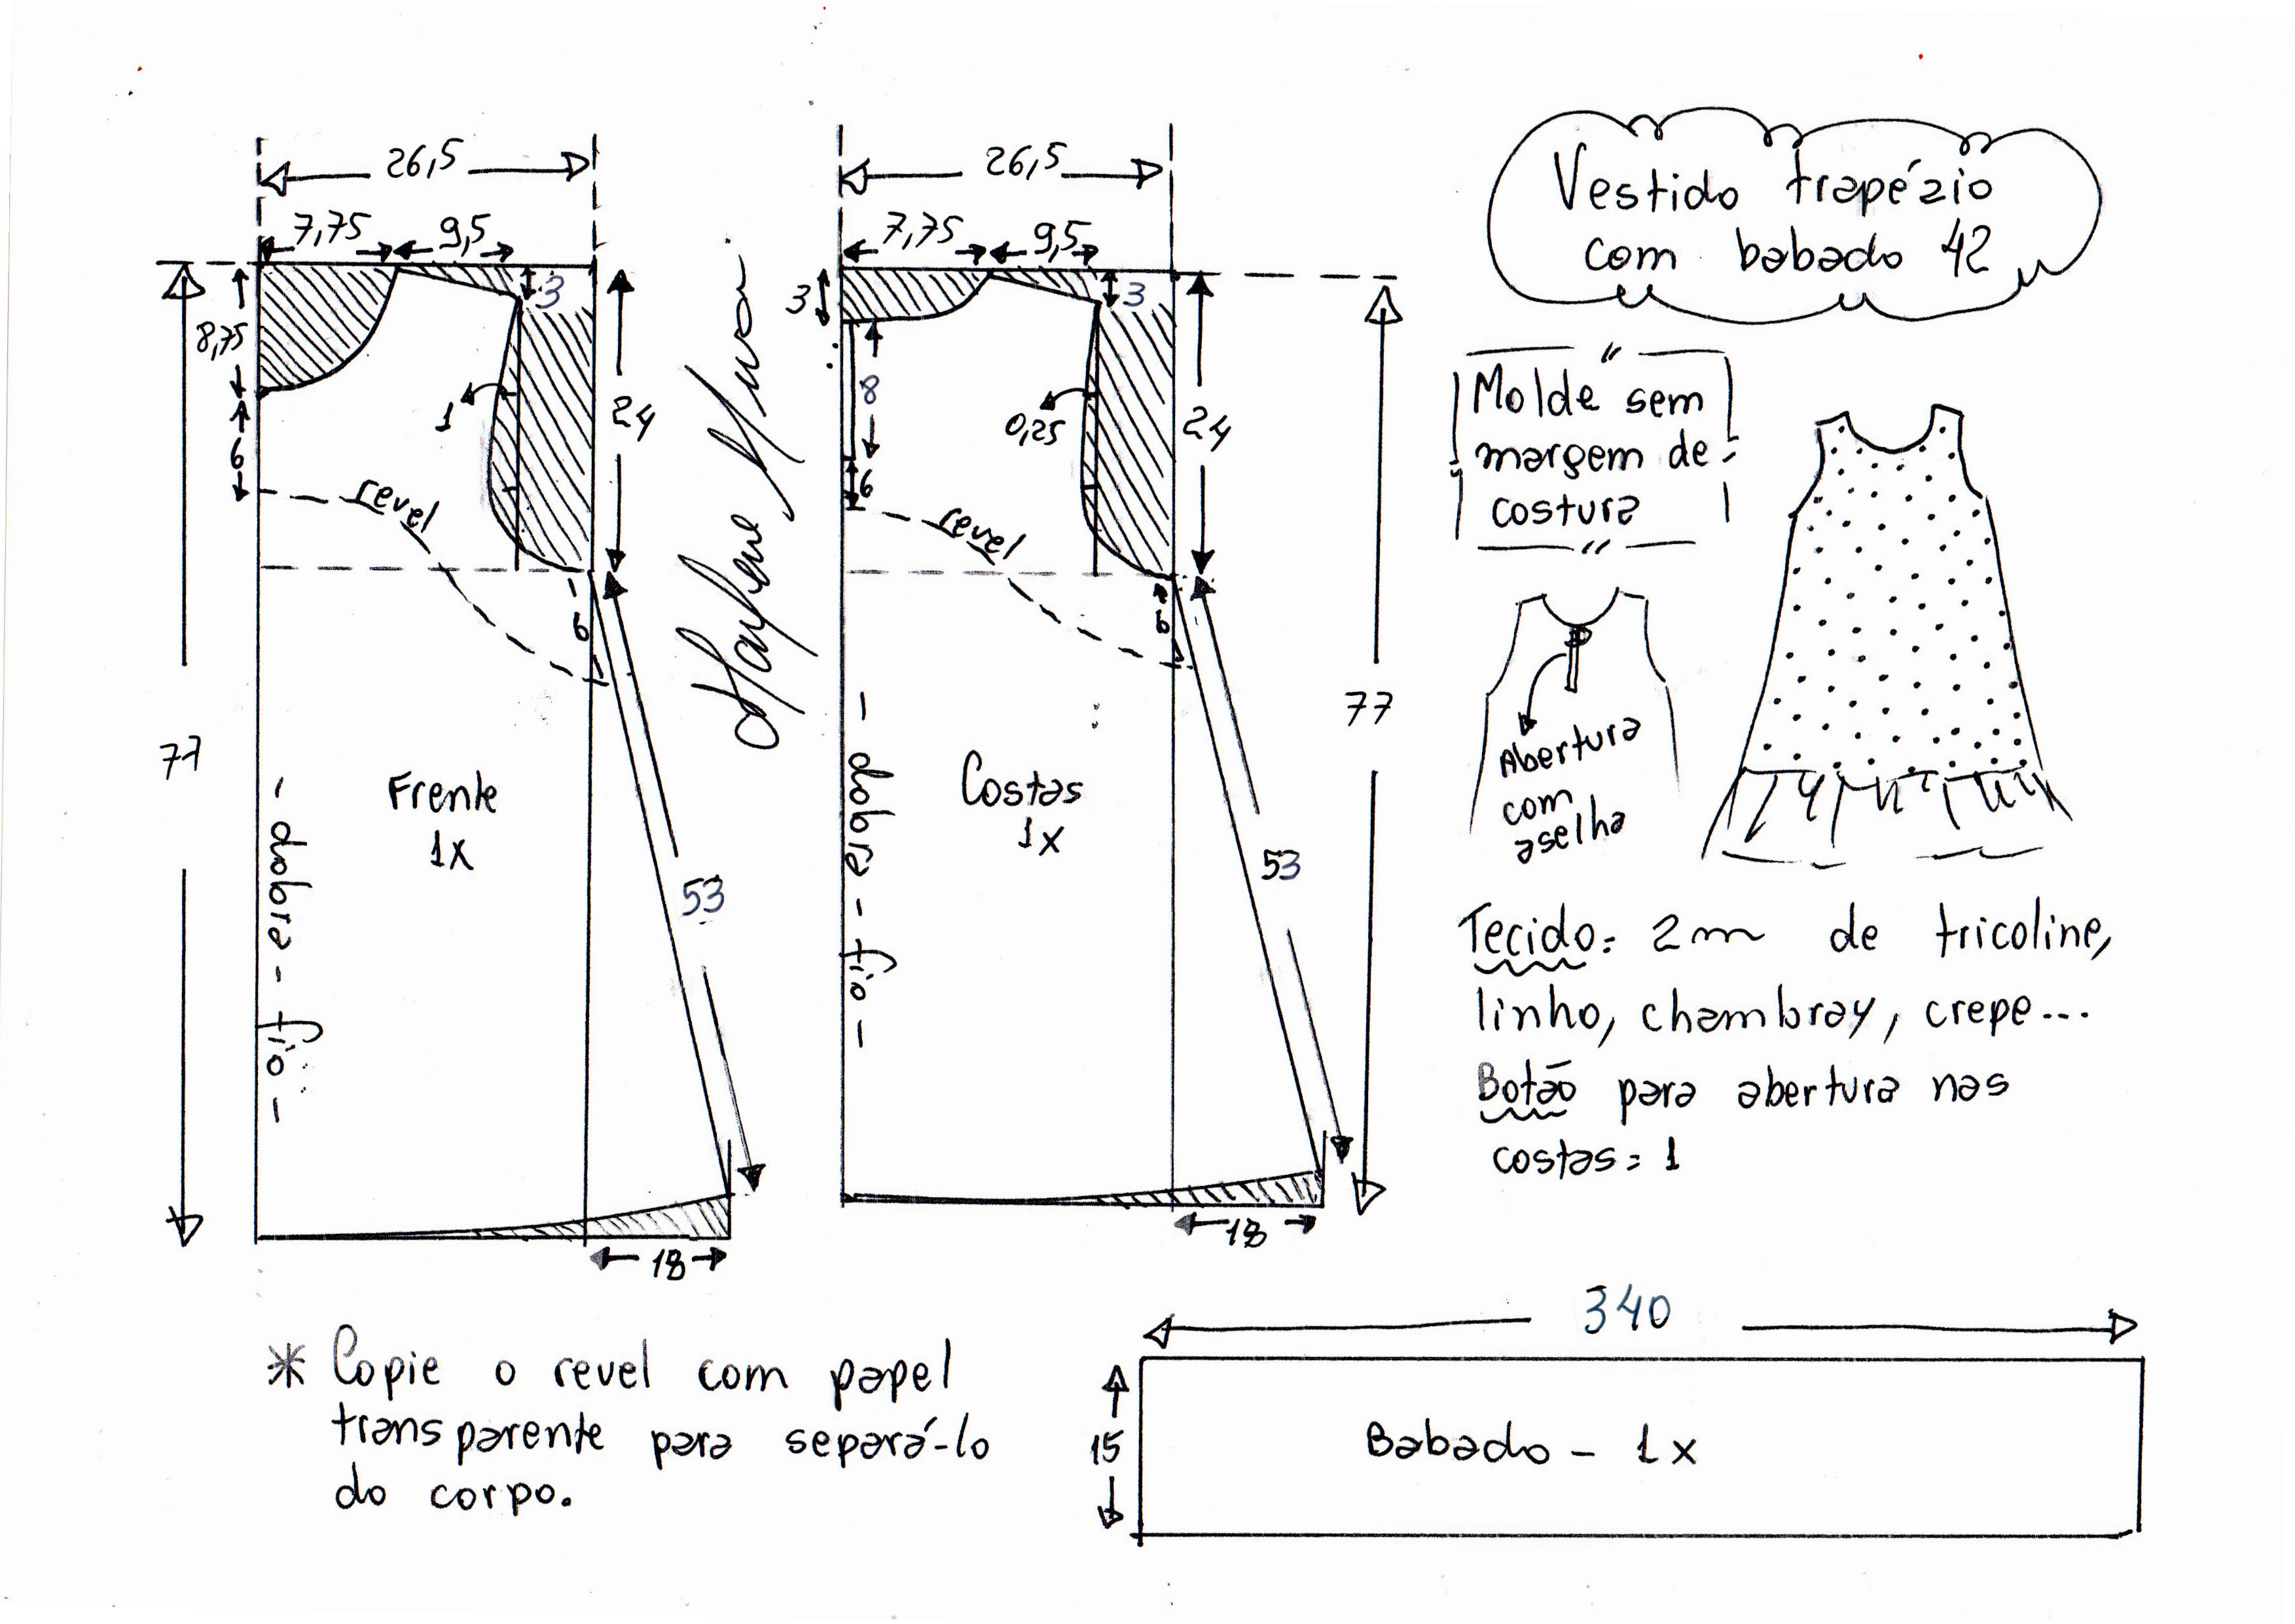 26,5
7,75
9,5
3
8,75
6
1
24
revel
6
77
Frente
1x
- dobra - fio -
53
18
26,5
7,75
9,5
3
3
8
6
0,25
24
revel
6
77
Costas
1x
- dobra - fio -
53
18
Vestido trapézio
com babado 42
Molde sem
margem de
costura
Abertura
com
aselha
Tecido: 2m de tricoline,
linho, chambray, crepe...
Botão para abertura nas
costas: 1
* Copie o revel com papel
transparente para separá-lo
do corpo.
340
15
Babado - 1x